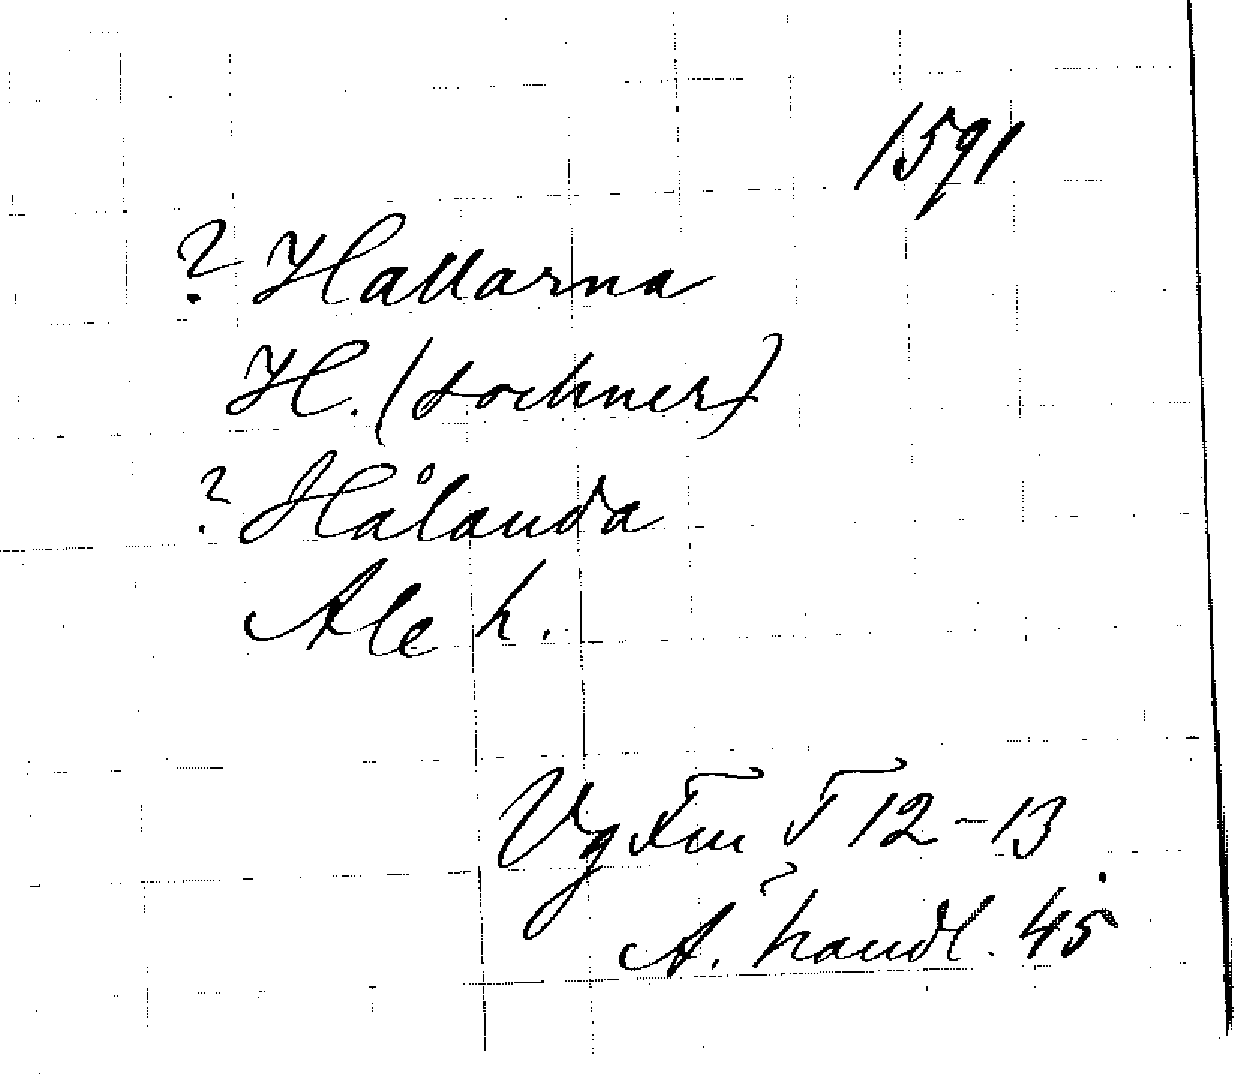 1591
? Hallarna
H. (sockner)
? Hålanda
Ale h.
Vg Fm T 12-13
A. handl. 45